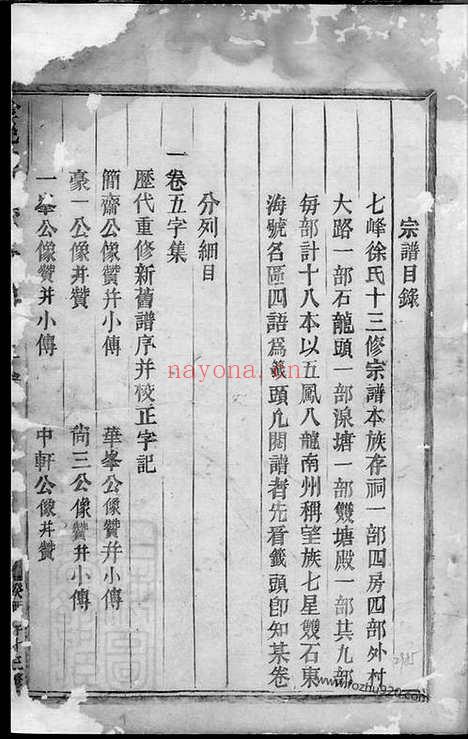 宗譜目錄
七峰徐氏十三修宗譜本族存祠一部四房四部外村
大路一部石龍頭一部湶塘一部雙塘殿一部其九部
每部計十八本以五鳳八龍南州稱望族七星雙石東
海號名區四語爲籤頭凡閱譜者先看籤頭即知某卷
分列細目
一卷五字集
歷代重修新舊譜序并校正字記
簡齋公像贊并小傳 華峯公像贊并小傳
豪一公像并贊 尚三公像贊并小傳
一峯公像贊并小傳 中軒公像并贊
nayona.cn
www.rozhu920.com